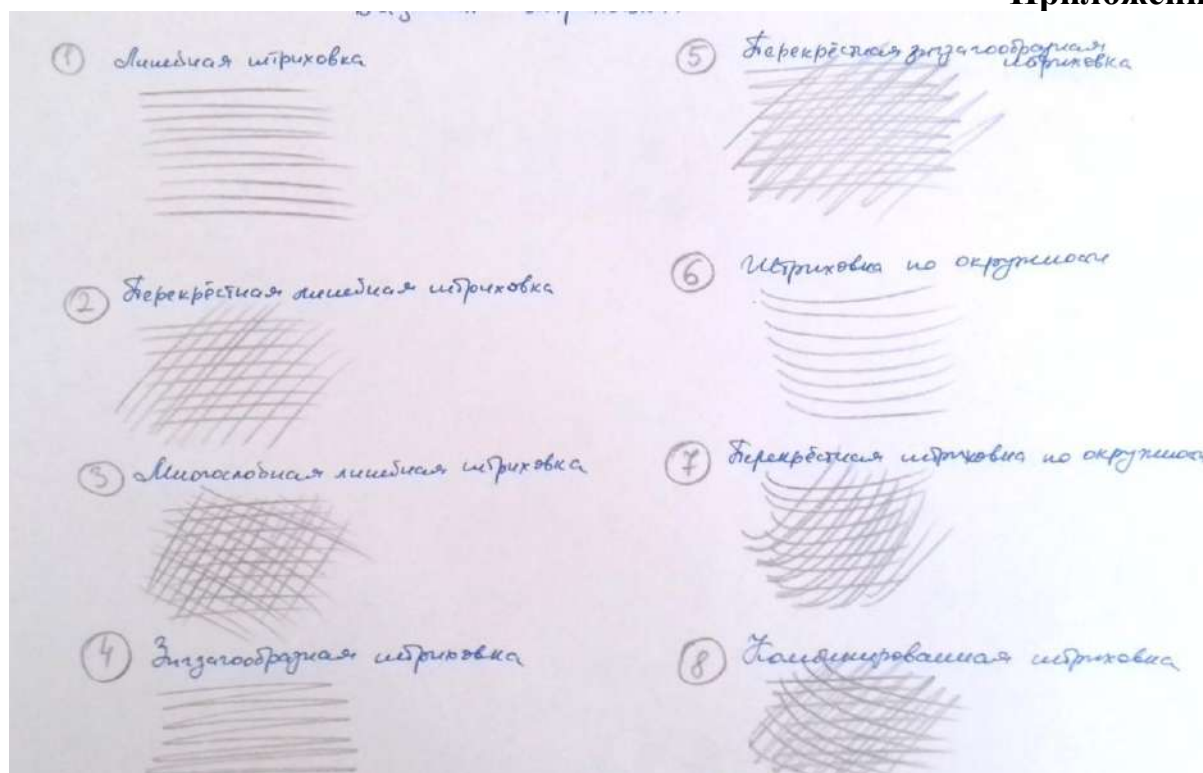 ① Линейная штриховка
② Перекрёстная линейная штриховка
③ Многослойная линейная штриховка
④ Зигзагообразная штриховка
⑤ Перекрёстная зигзагообразная
штриховка
⑥ Штриховка по окружности
⑦ Перекрёстная штриховка по
⑧ Комбинированная штриховка